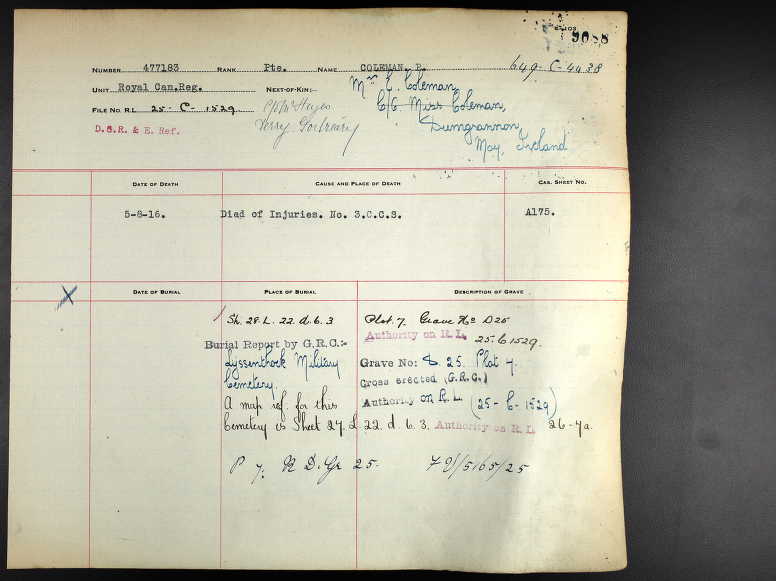 9088
649-C-4438
NUMBER 477183 RANK Pte. NAME COLEMAN. P.
UNIT Royal Can.Reg. NEXT-OF-KIN:- Mrs E. Coleman,
FILE NO. R.L. 25-C-1529 C/o Miss Coleman,
D.S.R. & E. Ref. Dungrannon,
May, Ireland
DATE OF DEATH CAUSE AND PLACE OF DEATH CAS. SHEET NO.
5-8-16. Diad of Injuries. No. 3.C.C.S. A175.
X DATE OF BURIAL PLACE OF BURIAL DESCRIPTION OF GRAVE
Sh. 28. L. 22. d. 6. 3 Plot. 7. Grave No D25
Authority on R.L. 25.6.1529.
Burial Report by G.R.C.:-
Lyssenthoek Military Grave No: D. 25. Plot 7.
Cemetery. Cross erected (G.R.C.)
A map ref. for this Authority on R.L. (25-C-1529)
Cemetery is Sheet 27. L 22. d. 6. 3. Authority on R.L. 26-7a.
P 7. R D. Gr 25.